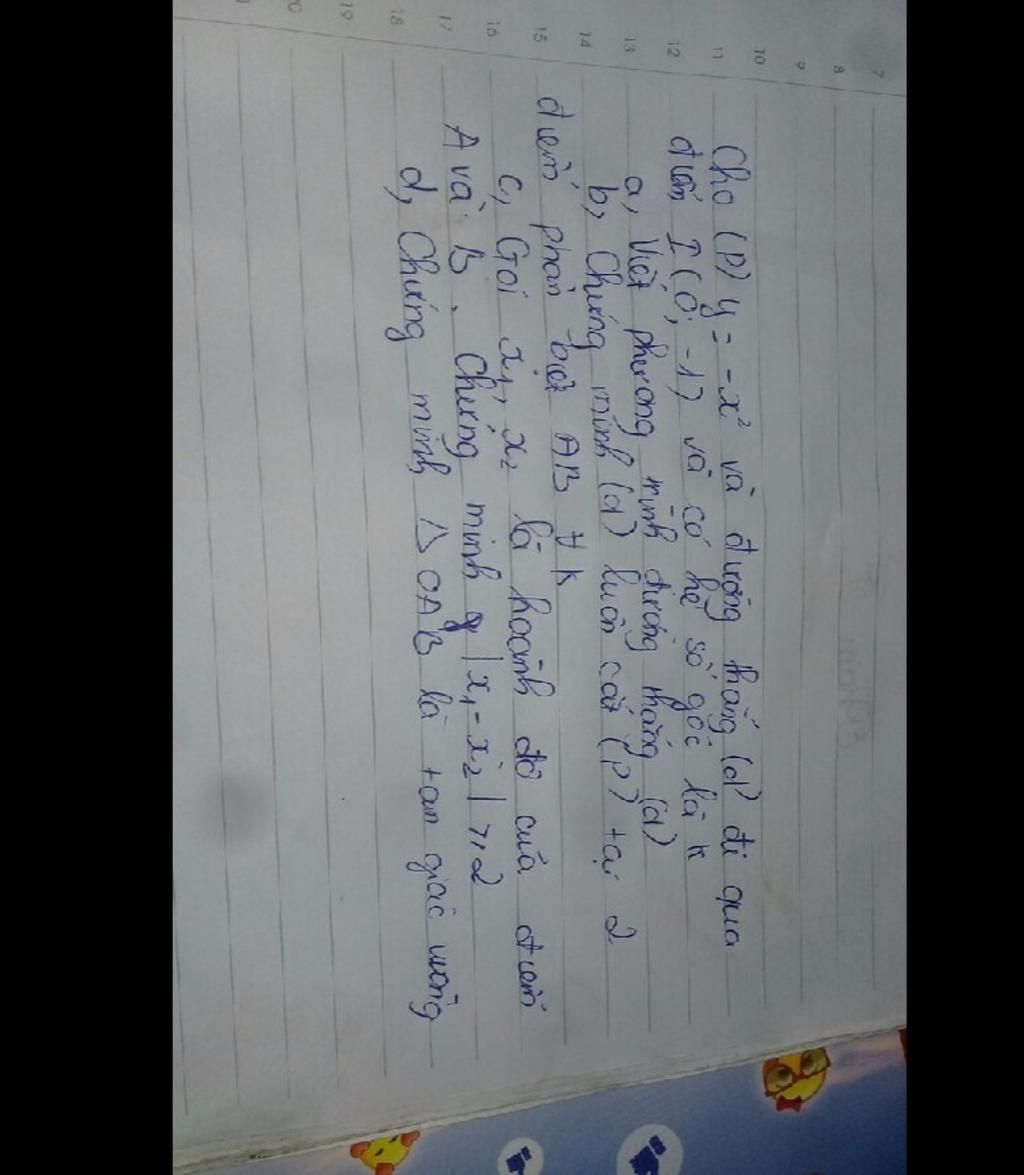 7 8 9 10 11 12 13 14 15 16 17 18 19 20
Cho (P) y = -x² và đường thẳng (d) đi qua
điểm I (0; -1) và có hệ số góc là k
a, Viết phương trình đường thẳng (d)
b, Chứng minh (d) luôn cắt (P) tại 2
điểm phân biệt AB ∀ k
c, Gọi x₁, x₂ là hoành độ của điểm
A và B. Chứng minh |x₁ - x₂| ≥ 2
d, Chứng minh △ OAB là tam giác vuông